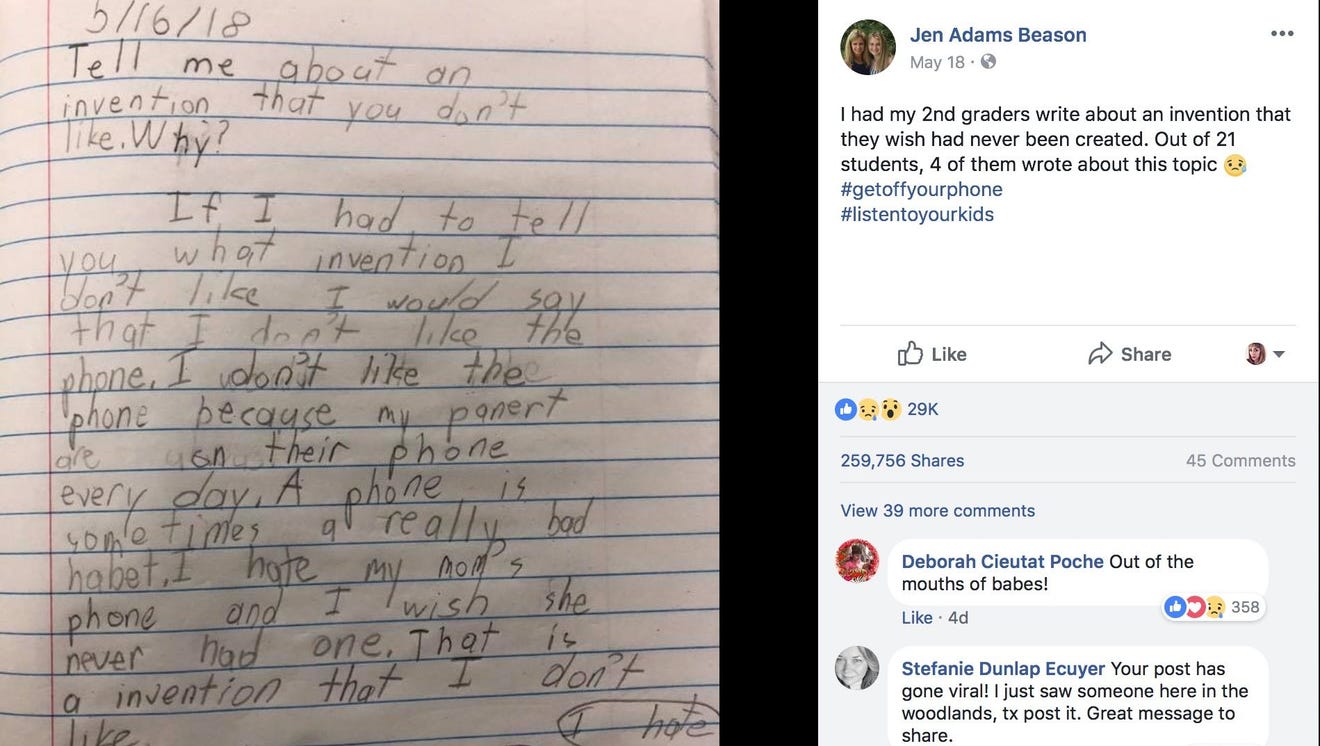 5/16/18
Tell me about an
invention that you don't
like. Why?
If I had to tell
you what invention I
don't like I would say
that I don't like the
phone. I don't like the
phone because my panert
are on their phone
every day. A phone is
sometimes a really bad
habet. I hate my mom's
phone and I wish she
never had one. That is
a invention that I don't
like.
I hate
Jen Adams Beason
May 18 ·
I had my 2nd graders write about an invention that
they wish had never been created. Out of 21
students, 4 of them wrote about this topic 😢
#getoffyourphone
#listentoyourkids
Like Share
29K
259,756 Shares 45 Comments
View 39 more comments
Deborah Cieutat Poche Out of the
mouths of babes!
358
Like · 4d
Stefanie Dunlap Ecuyer Your post has
gone viral! I just saw someone here in the
woodlands, tx post it. Great message to
share.